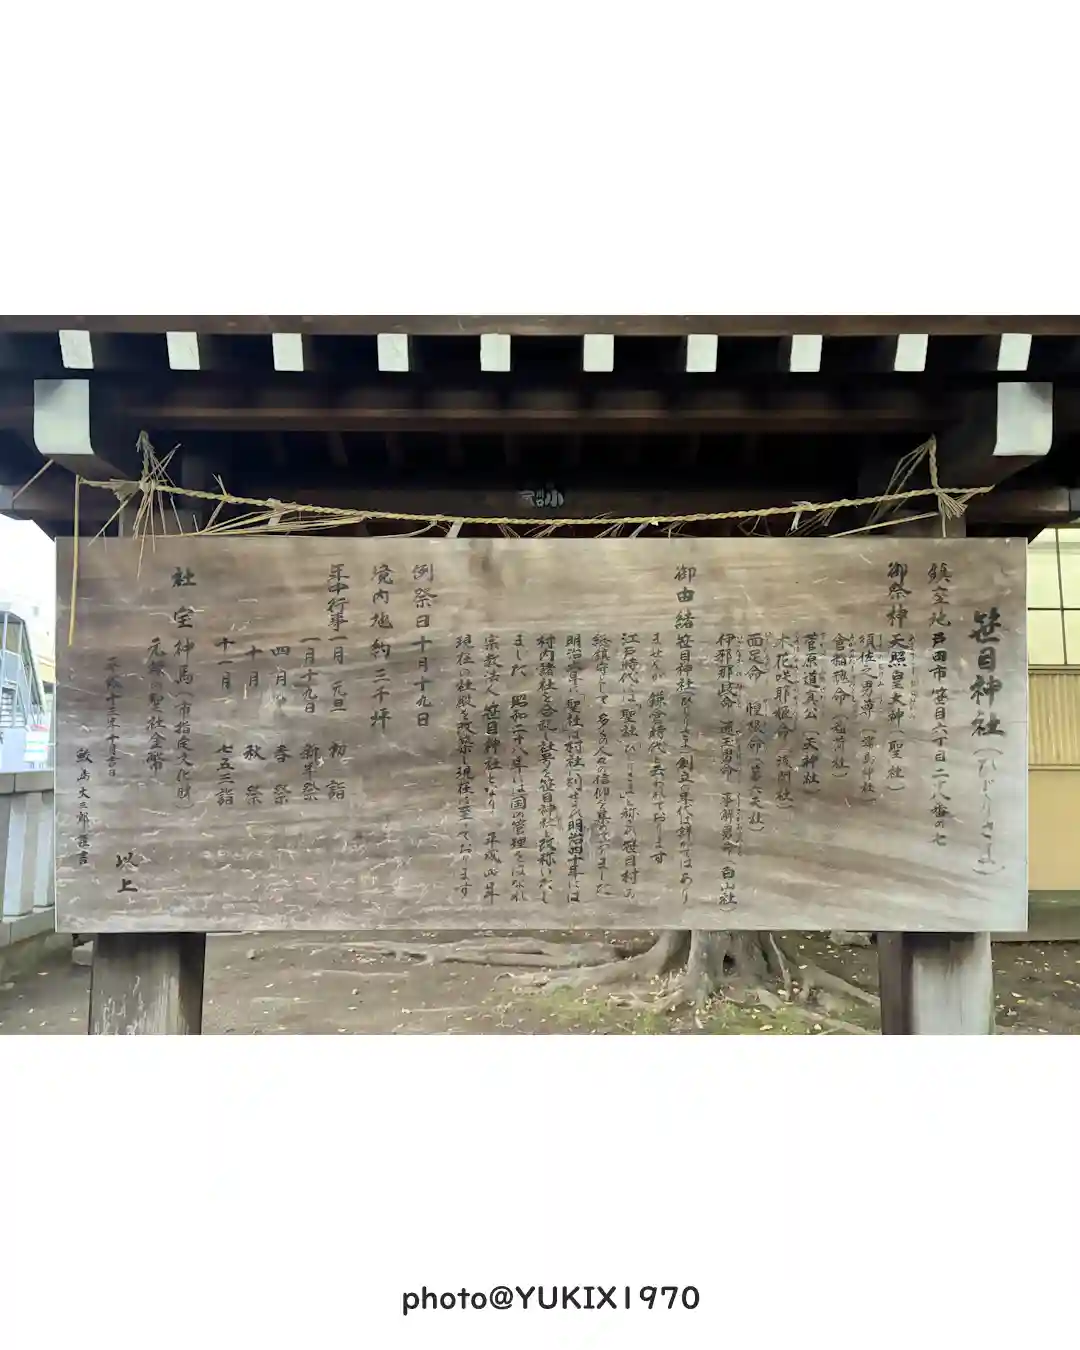 笹目神社（ひじりさま）
鎮座地 戸田市笹目六丁目二八番の七
御祭神 天照皇大神（聖社）
須佐之男尊（ 神社）
倉稲穂命（稲荷社）
菅原道真公（天神社）
木花咲耶姫命（浅間社）
面足命 惶根命（第六天社）
伊邪那岐命 速玉男命 事解男命（白山社）
御由緒 笹目神社（ひじりさま）創立の年代は詳かではあり
ませんが鎌倉時代と云われております
江戸時代には「聖社（ひじりさま）」と称され笹目村の
総鎮守として多くの人々の信仰を集めてきました
明治六年に「聖社」は村社に列せられ明治四十年には
村内諸社を合祀し社号を笹目神社と改称いたし
ました 昭和二十八年には国の管理をはなれ
宗教法人笹目神社となり 平成四年
現在の社殿を改築し現在に至っております
例祭日 十月十九日
境内地 約三千坪
年中行事 一月 元旦 初詣
一月十九日 新年祭
四月 春祭
十月 秋祭
十一月 七五三詣
社宝 神馬（市指定文化財）
元禄の聖社金幣
以上
平成十三年十月吉日
大三郎 謹言
photo@YUKIX1970